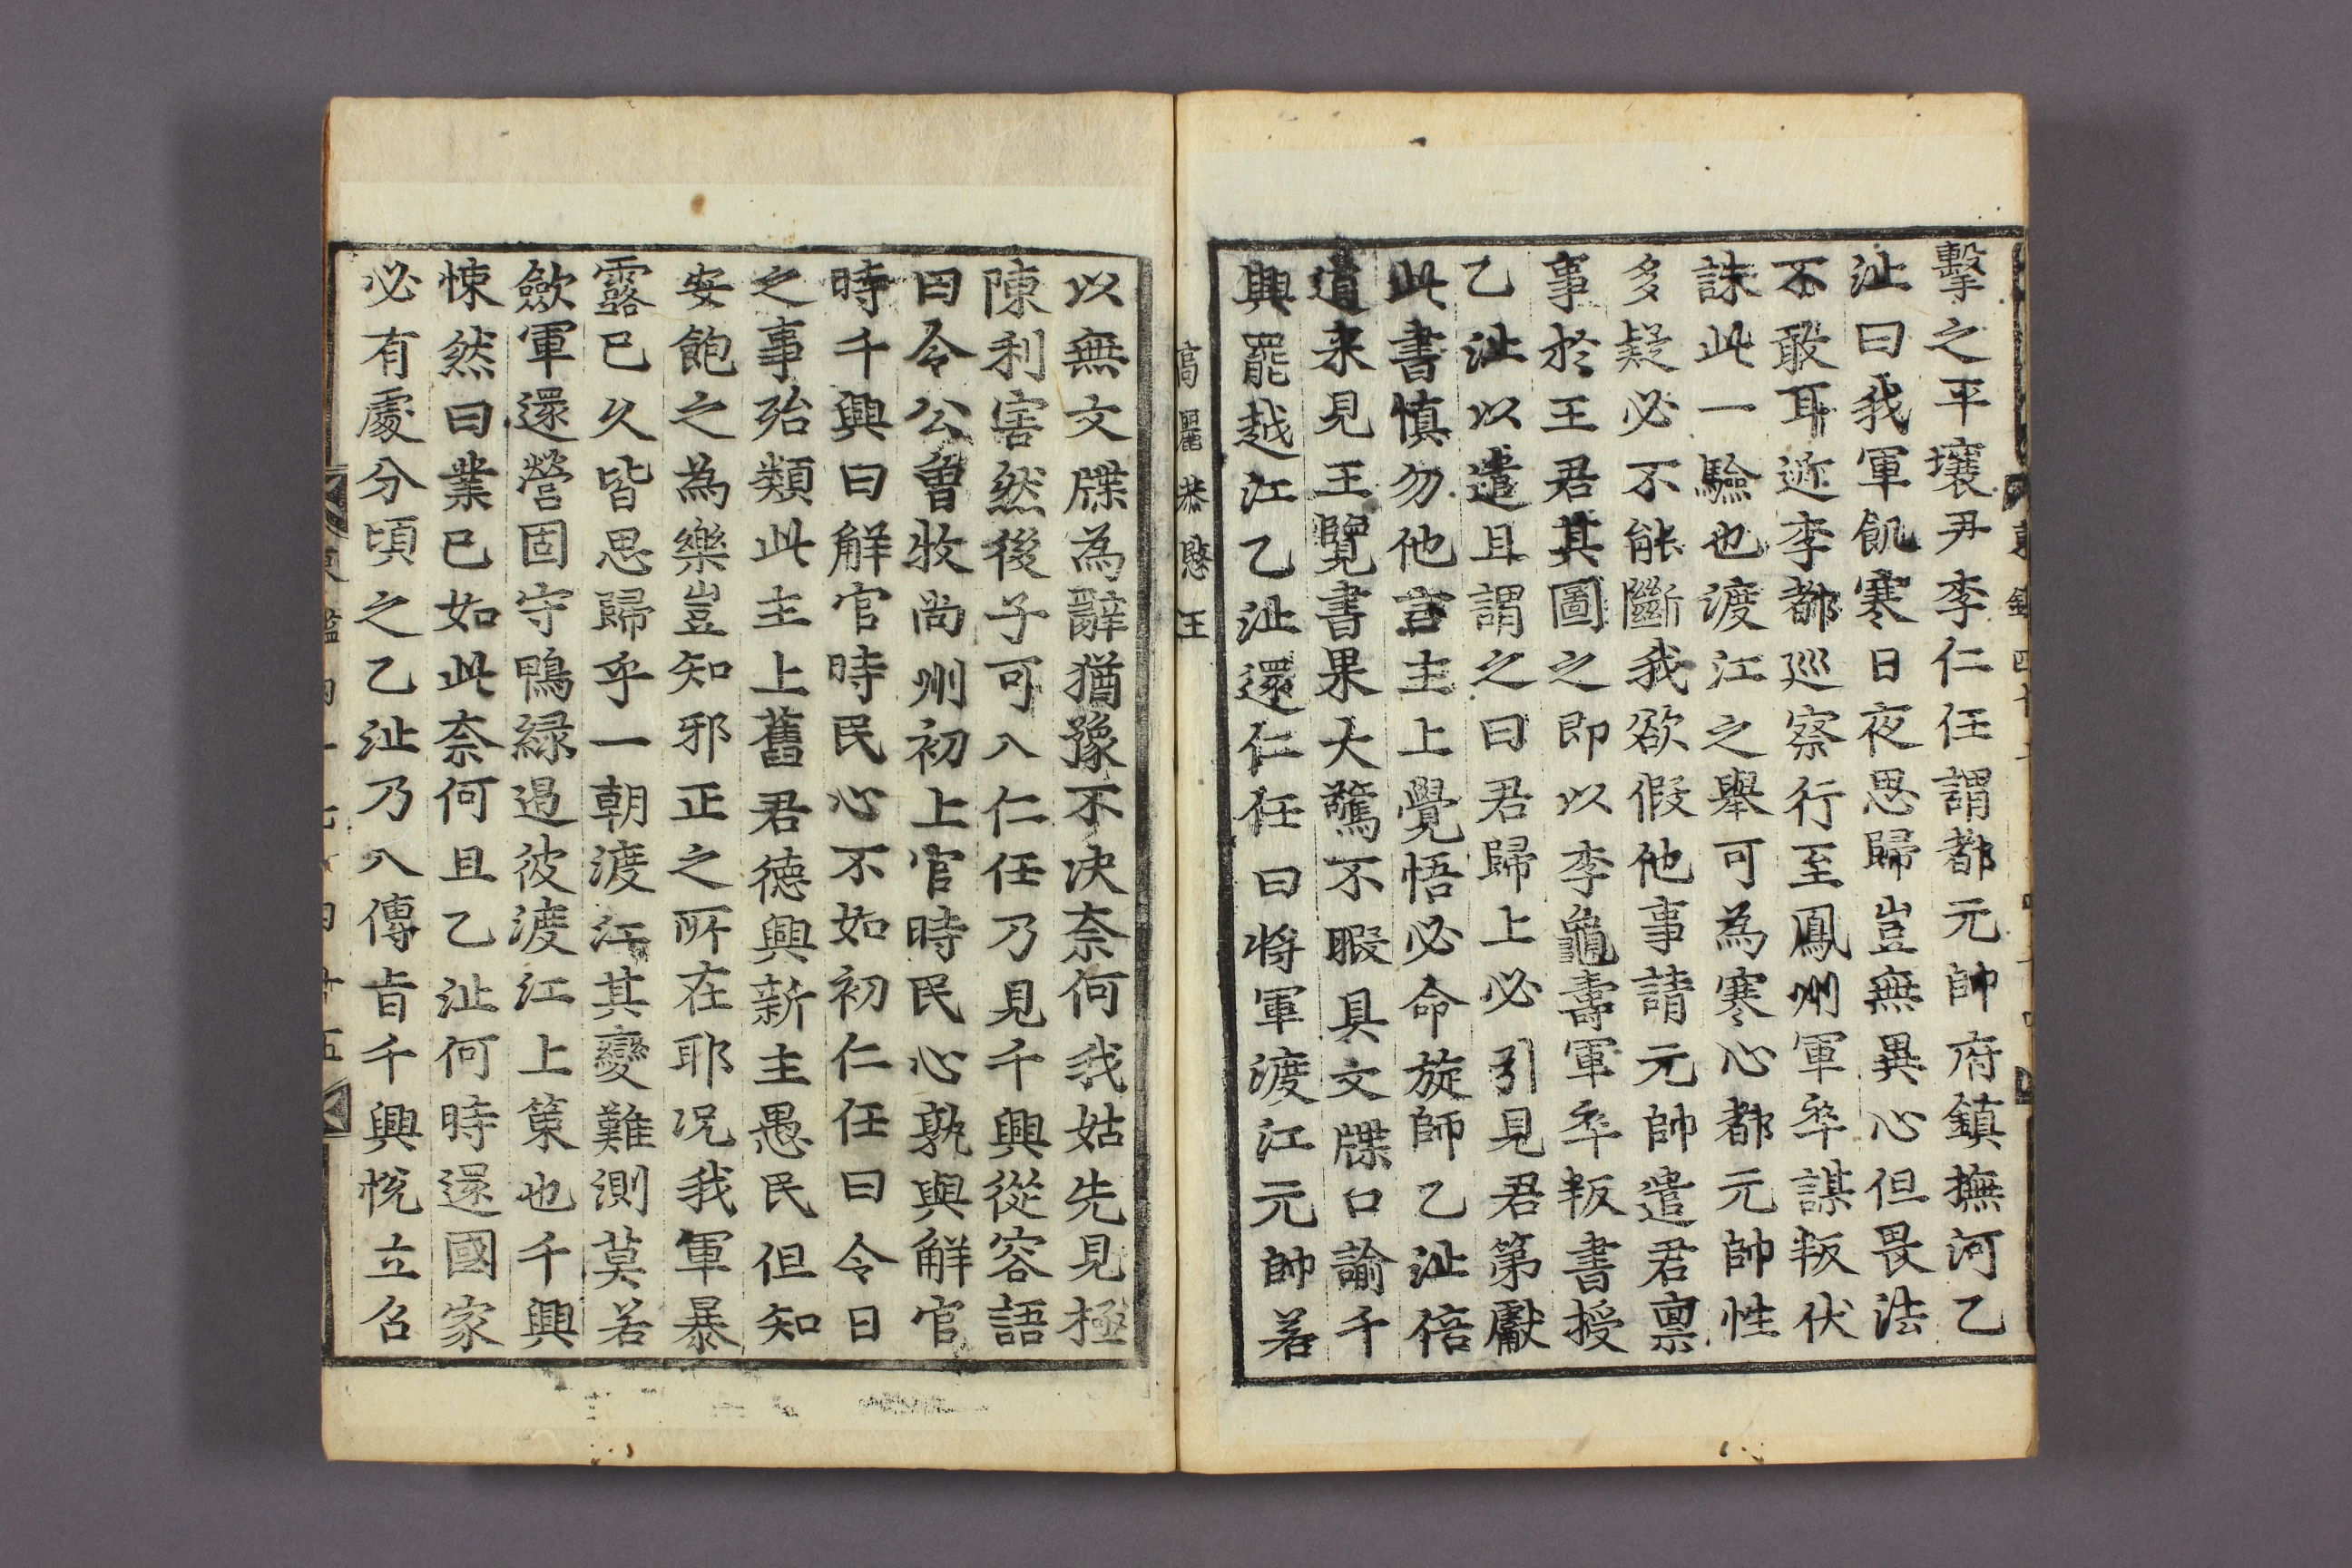 擊之平壤尹李仁任謂都元帥府鎮撫河乙
沚曰我軍飢寒日夜思歸豈無異心但畏法
不敢耳近李都巡察行至鳳州軍卒謀叛伏
誅此一驗也渡江之舉可為寒心都元帥性
多疑必不能斷我欲假他事請元帥遣君稟
事於王君其圖之即以李龜壽軍卒叛書授
乙沚以遣且謂之曰君歸上必引見君第獻
此書慎勿他言主上覺悟必命旋師乙沚倍
道来見王覽書果大驚不暇具文牒口諭千
興罷越江乙沚還仁任曰將軍渡江元帥若
高麗恭愍王
以無文牒為辭猶豫不决奈何我姑先見極
陳利害然後子可入仁任乃見千興從容語
曰令公曾牧尚州初上官時民心孰與解官
時千興曰解官時民心不如初仁任曰今日
之事殆類此主上舊君德興新主愚民但知
安飽之為樂豈知邪正之所在耶况我軍暴
露已久皆思歸乎一朝渡江其變難測莫若
歛軍還營固守鴨綠遏彼渡江上策也千興
悚然曰業已如此奈何且乙沚何時還國家
必有處分頃之乙沚乃入傳旨千興悅立召